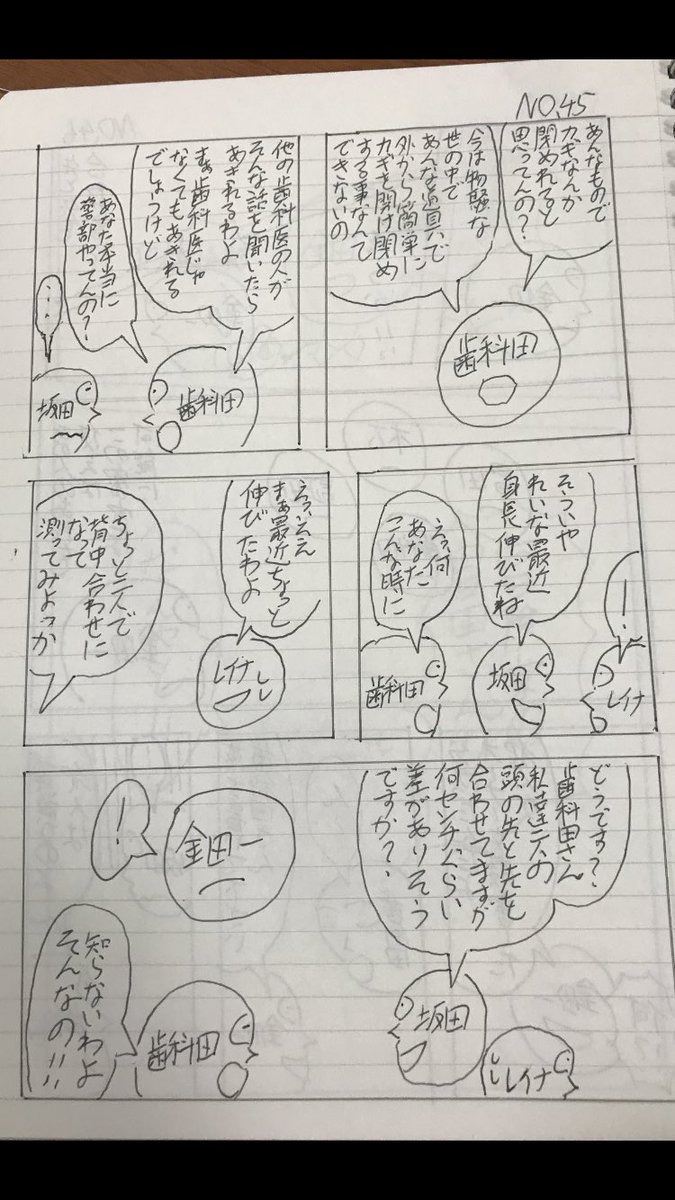 NO,45
あんなもので
カギなんか
閉めれると
思ってんの?
今は物騒な
世の中で
あんな道具で
外から簡単に
カギを開け閉め
する事なんて
できないの
歯科田
他の歯科医の人が
そんな話を聞いたら
あきれるわよ
まぁ歯科医じゃ
なくてもあきれる
でしょうけど
あなた本当に
警部やってんの?
歯科田
…
坂田
そういや
れいな最近
身長伸びたね
!
レイナ
坂田
えっ何
あなた
こんな時に
歯科田
えっ、ええ
まぁ最近ちょっと
伸びたわよ
レイナ
ちょっと二人で
背中合わせに
なって
測ってみよっか
どうです?
歯科田さん
私達二人の
頭の先と先を
合わせてますが
何センチぐらい
差がありそう
ですか?
坂田
レイナ
金田一
!
知らないわよ
そんなの!!
歯科田